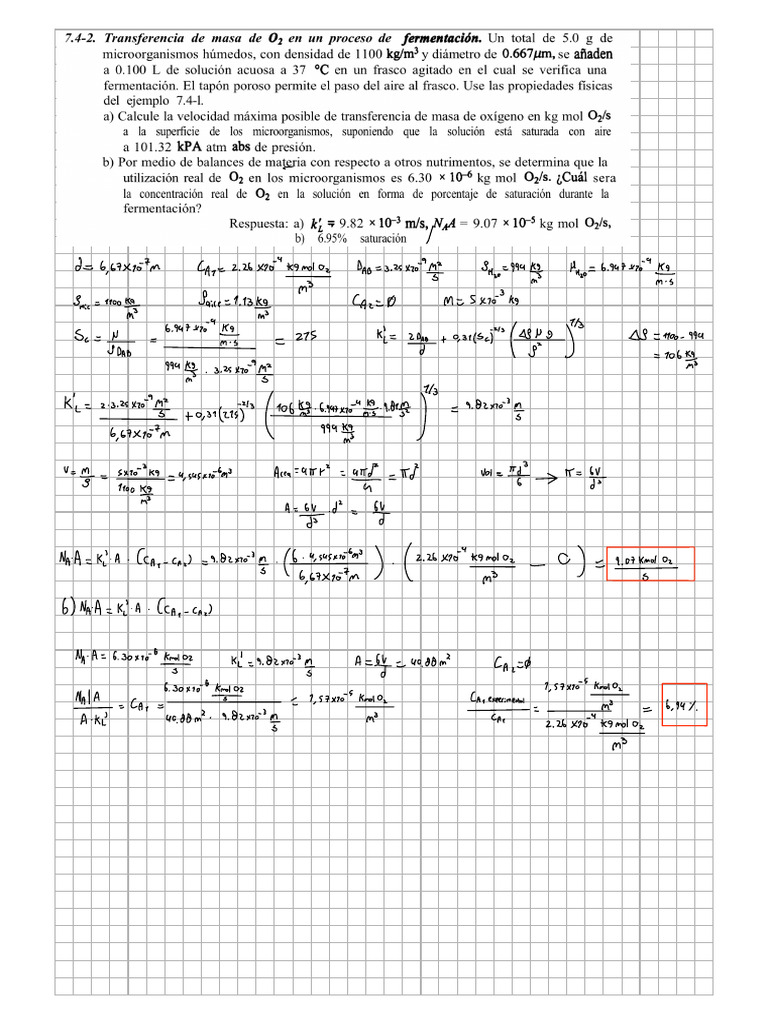 7.4-2. Transferencia de masa de O₂ en un proceso de fermentación. Un total de 5.0 g de
microorganismos húmedos, con densidad de 1100 kg/m³ y diámetro de 0.667μm, se añaden
a 0.100 L de solución acuosa a 37 °C en un frasco agitado en el cual se verifica una
fermentación. El tapón poroso permite el paso del aire al frasco. Use las propiedades físicas
del ejemplo 7.4-l.
a) Calcule la velocidad máxima posible de transferencia de masa de oxígeno en kg mol O₂/s
a la superficie de los microorganismos, suponiendo que la solución está saturada con aire
a 101.32 kPA atm abs de presión.
b) Por medio de balances de materia con respecto a otros nutrimentos, se determina que la
utilización real de O₂ en los microorganismos es 6.30 × 10⁻⁶ kg mol O₂/s. ¿Cuál sera
la concentración real de O₂ en la solución en forma de porcentaje de saturación durante la
fermentación?
Respuesta: a) k'_L = 9.82 × 10⁻³ m/s, N_A A = 9.07 × 10⁻⁵ kg mol O₂/s,
b) 6.95% saturación
d = 6,67×10⁻⁷ m C_A₁ = 2.26×10⁻⁴ Kg mol O₂/m³ D_AB = 3.25×10⁻⁹ m²/s ρ_H₂O = 994 Kg/m³ μ_H₂O = 6.947×10⁻⁴ Kg/m·s
ρ_mic = 1100 Kg/m³ ρ_aire = 1.13 Kg/m³ C_A₂ = 0 M = 5×10⁻³ kg
Sc = μ/ρD_AB = (6.947×10⁻⁴ Kg/m·s)/(994 Kg/m³ · 3.25×10⁻⁹ m²/s) = 215 K'_L = 2D_AB/d + 0,31(Sc)⁻²/³ (Δρ μ g/ρ²)^1/3 Δρ = 1100 - 994
= 106 Kg/m³
K'_L = (2·3.25×10⁻⁹ m²/s)/(6,67×10⁻⁷ m) + 0,31(215)⁻²/³ (106 Kg/m³ · 6.947×10⁻⁴ Kg/m·s · 9.81 m/s² / 994 Kg/m³)^1/3 = 9.82×10⁻³ m/s
V = m/ρ = (5×10⁻³ Kg)/(1100 Kg/m³) = 4,545×10⁻⁶ m³ Area = 4πr² = 4πd²/4 = πd² Vol = πd³/6 → π = 6V/d³
A = 6V/d³ · d² = 6V/d
N_A·A = K'_L·A·(C_A₁ – C_A₂) = 9.82×10⁻³ m/s · (6·4,545×10⁻⁶ m³/6,67×10⁻⁷ m) · (2.26×10⁻⁴ Kg mol O₂/m³ – 0) = 9.07 Kmol O₂/s
b) N_A·A = K'_L·A·(C_A₁ – C_A₂)
N_A·A = 6.30×10⁻⁶ Kmol O₂/s K'_L = 9.82×10⁻³ m/s A = 6V/d = 40.88 m² C_A₂ = 0
N_A|A/A·K'_L = C_A₁ = (6.30×10⁻⁶ Kmol O₂/s)/(40.88 m² · 9.82×10⁻³ m/s) = 1,57×10⁻⁵ Kmol O₂/m³ C_A₁ experimental/C_A₁ = (1,57×10⁻⁵ Kmol O₂/m³)/(2.26×10⁻⁴ Kg mol O₂/m³) = 6,94 %.